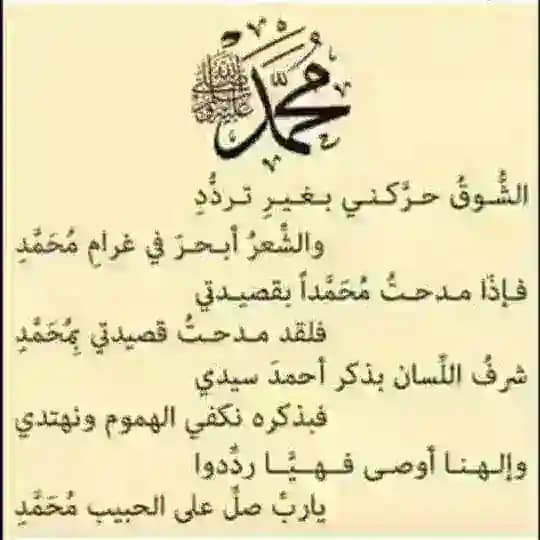 محمد
صلى الله عليه وسلم
الشُّوقُ حرَّكنـي بـغـيـرِ تـردُّدِ
والشِّعرُ أبـحـرَ في غرامِ مُحَمَّدِ
فـإذَا مـدحـتُ مُحَمَّداً بقصيـدتي
فلقد مـدحـتُّ قصيدتي بِمُحَمَّدِ
شرفُ اللِّسان بذكر أحمدَ سيدي
فبذكره نكفي الهموم ونهتدي
وإلـهـنـا أوصـى فـهـيَّـا ردِّدوا
ياربِّ صلِّ على الحبيب مُحَمَّدِ